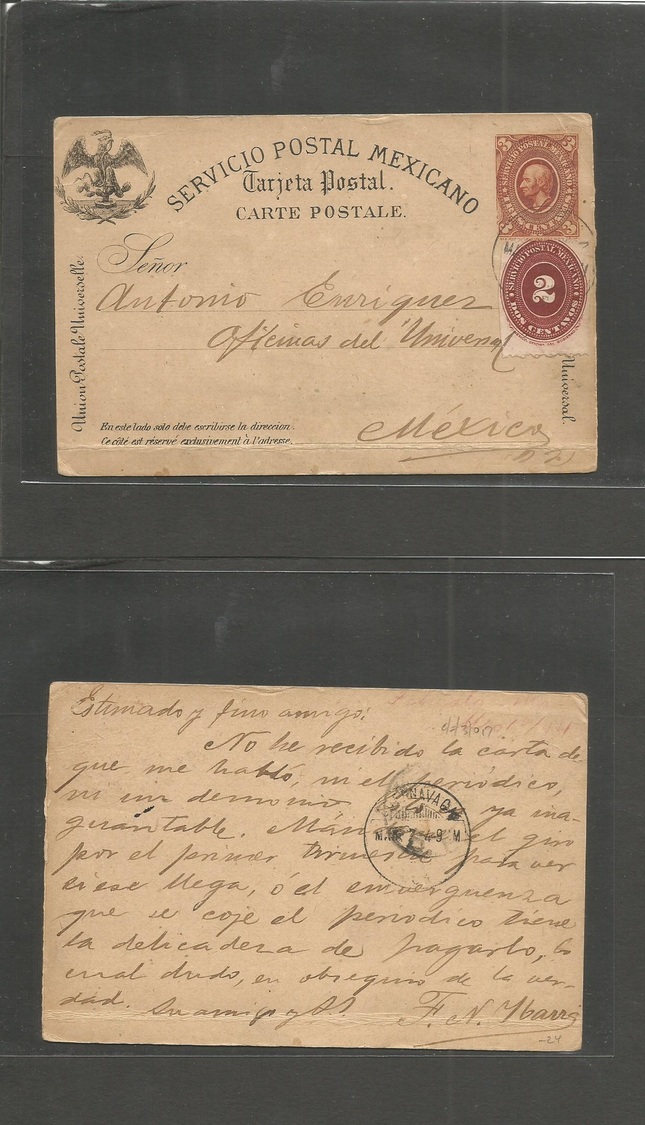 SERVICIO POSTAL MEXICANO
Tarjeta Postal.
CARTE POSTALE.
3 3
SERVICIO POSTAL MEXICANO
TRES CENTAVOS
SERVICIO POSTAL MEXICANO
2
DOS CENTAVOS
Señor
Antonio Enriquez
Oficinas del "Universal
México
Union Postale Universelle.
Universal.
En este lado solo debe escribirse la direccion.
Ce côté est réservé exclusivement à l'adresse.
Estimado y fino amigo:
No he recibido la carta de
que me habló, ni el periódico,
ni un demonio ya ina-
guantable. el giro
por el primer trimestre para ver
si ese llega, ó el sinvergüenza
que se coje el periodico tiene
la delicadeza de pagarlo, lo
cual dudo, en obsequio de la ver-
dad. Su amigo y S.
F. N. Ybarra
-24